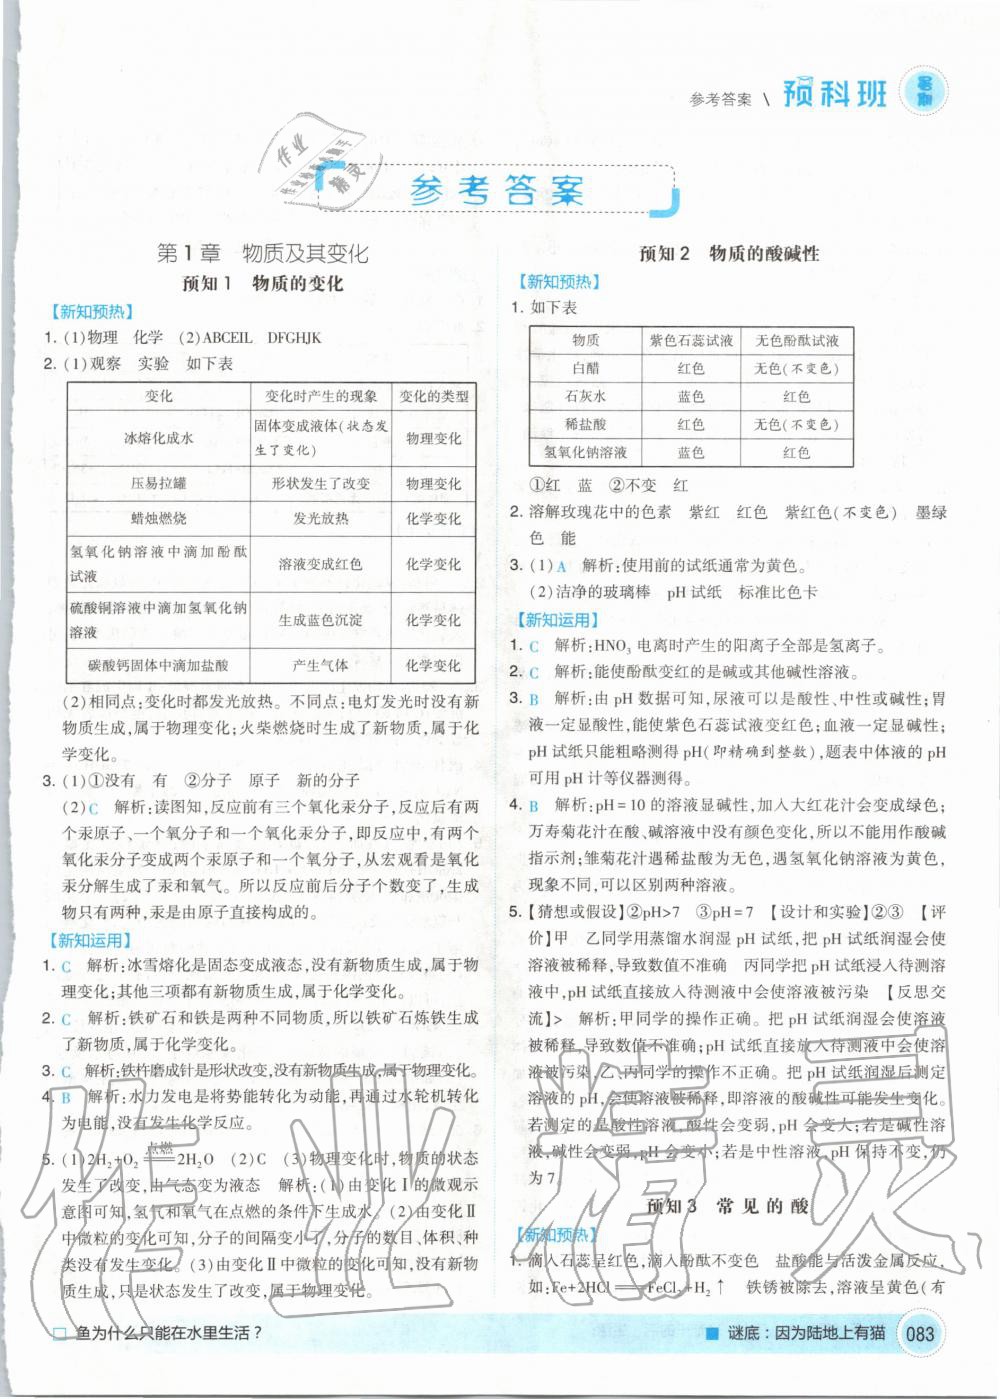 参考答案 \ 预科班 暑期
作业
精灵
参考答案
第1章 物质及其变化
预知1 物质的变化
【新知预热】
1. (1)物理 化学 (2)ABCEIL DFGHJK
2. (1)观察 实验 如下表
变化 变化时产生的现象 变化的类型
冰熔化成水 固体变成液体(状态发生了变化) 物理变化
压易拉罐 形状发生了改变 物理变化
蜡烛燃烧 发光放热 化学变化
氢氧化钠溶液中滴加酚酞试液 溶液变成红色 化学变化
硫酸铜溶液中滴加氢氧化钠溶液 生成蓝色沉淀 化学变化
碳酸钙固体中滴加盐酸 产生气体 化学变化
(2)相同点:变化时都发光放热。不同点:电灯发光时没有新
物质生成,属于物理变化;火柴燃烧时生成了新物质,属于化
学变化。
3. (1)①没有 有 ②分子 原子 新的分子
(2)C 解析:读图知,反应前有三个氧化汞分子,反应后有两
个汞原子、一个氧分子和一个氧化汞分子,即反应中,有两个
氧化汞分子变成两个汞原子和一个氧分子,从宏观看是氧化
汞分解生成了汞和氧气。所以反应前后分子个数变了,生成
物只有两种,汞是由原子直接构成的。
【新知运用】
1. C 解析:冰雪熔化是固态变成液态,没有新物质生成,属于物
理变化;其他三项都有新物质生成,属于化学变化。
2. C 解析:铁矿石和铁是两种不同物质,所以铁矿石炼铁生成
了新物质,属于化学变化。
3. C 解析:铁杵磨成针是形状改变,没有新物质生成,属于物理变化。
4. B 解析:水力发电是将势能转化为动能,再通过水轮机转化
为电能,没有发生化学反应。
5. (1)2H₂+O₂ 点燃 2H₂O (2)C (3)物理变化时,物质的状态
发生了改变,由气态变为液态 解析:(1)由变化Ⅰ的微观示
意图可知,氢气和氧气在点燃的条件下生成水。(2)由变化Ⅱ
中微粒的变化可知,分子的间隔变小了,分子数目、体积、种
类没有发生变化。(3)由变化Ⅱ中微粒的变化可知,没有新物
质生成,只是状态发生了改变,属于物理变化。
预知2 物质的酸碱性
【新知预热】
1. 如下表
物质 紫色石蕊试液 无色酚酞试液
白醋 红色 无色(不变色)
石灰水 蓝色 红色
稀盐酸 红色 无色(不变色)
氢氧化钠溶液 蓝色 红色
①红 蓝 ②不变 红
2. 溶解玫瑰花中的色素 紫红 红色 紫红色(不变色) 墨绿
色 能
3. (1)A 解析:使用前的试纸通常为黄色。
(2)洁净的玻璃棒 pH试纸 标准比色卡
【新知运用】
1. C 解析:HNO₃ 电离时产生的阳离子全部是氢离子。
2. C 解析:能使酚酞变红的是碱或其他碱性溶液。
3. B 解析:由 pH 数据可知,尿液可以是酸性、中性或碱性;胃
液一定显酸性,能使紫色石蕊试液变红色;血液一定显碱性;
pH 试纸只能粗略测得 pH(即精确到整数),题表中体液的 pH
可用 pH 计等仪器测得。
4. B 解析:pH=10 的溶液显碱性,加入大红花汁会变成绿色;
万寿菊花汁在酸、碱溶液中没有颜色变化,所以不能用作酸碱
指示剂;雏菊花汁遇稀盐酸为无色,遇氢氧化钠溶液为黄色,
现象不同,可以区别两种溶液。
5. 【猜想或假设】②pH>7 ③pH=7 【设计和实验】②③ 【评
价】甲 乙同学用蒸馏水润湿 pH 试纸,把 pH 试纸润湿会使
液被稀释,导致数值不准确 丙同学把 pH 试纸浸入待测溶
液中,pH 试纸直接放入待测液中会使溶液被污染 【反思交
流】> 解析:甲同学的操作正确。把 pH 试纸润湿会使溶液
被稀释,导致数值不准确;pH 试纸直接放入待测液中会使溶
液被污染,乙、丙同学的操作不正确。把 pH 试纸润湿后测定
溶液的 pH,会使溶液被稀释,即溶液的酸碱性可能发生变化。
若测定的是酸性溶液,酸性会变弱,pH 会变大;若是碱性溶
液,碱性会变弱,pH 会变小;若是中性溶液,pH 保持不变,仍
为 7。
预知3 常见的酸
【新知预热】
1. 滴入石蕊呈红色,滴入酚酞不变色 盐酸能与活泼金属反应,
如:Fe+2HCl══FeCl₂+H₂↑ 铁锈被除去,溶液呈黄色(有
作业精灵
□ 鱼为什么只能在水里生活?
■ 谜底:因为陆地上有猫 083